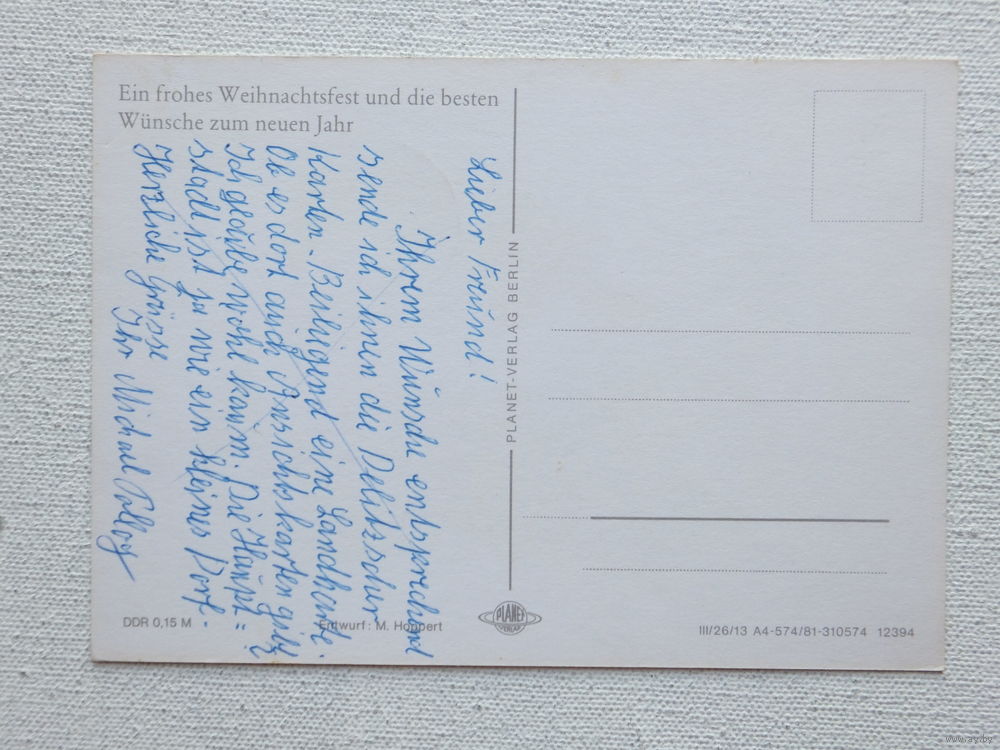 Ein frohes Weihnachtsfest und die besten
Wünsche zum neuen Jahr
Lieber Freund!
Ihrem Wunsche entsprechend
sende ich ihnen die Delitzscher
Karten. Beiliegend eine Landkarte.
Ob es dort auch Ansichtskarten gibt?
Ich glaube wohl kaum. Die Haupt=
stadt ist ja wie ein kleines Dorf.
Herzliche Grüsse
Ihr Michael
PLANET-VERLAG BERLIN
PLANET
VERLAG
DDR 0,15 M
Entwurf: M. Hoppert
III/26/13 A4-574/81-310574 12394
www.ay.by